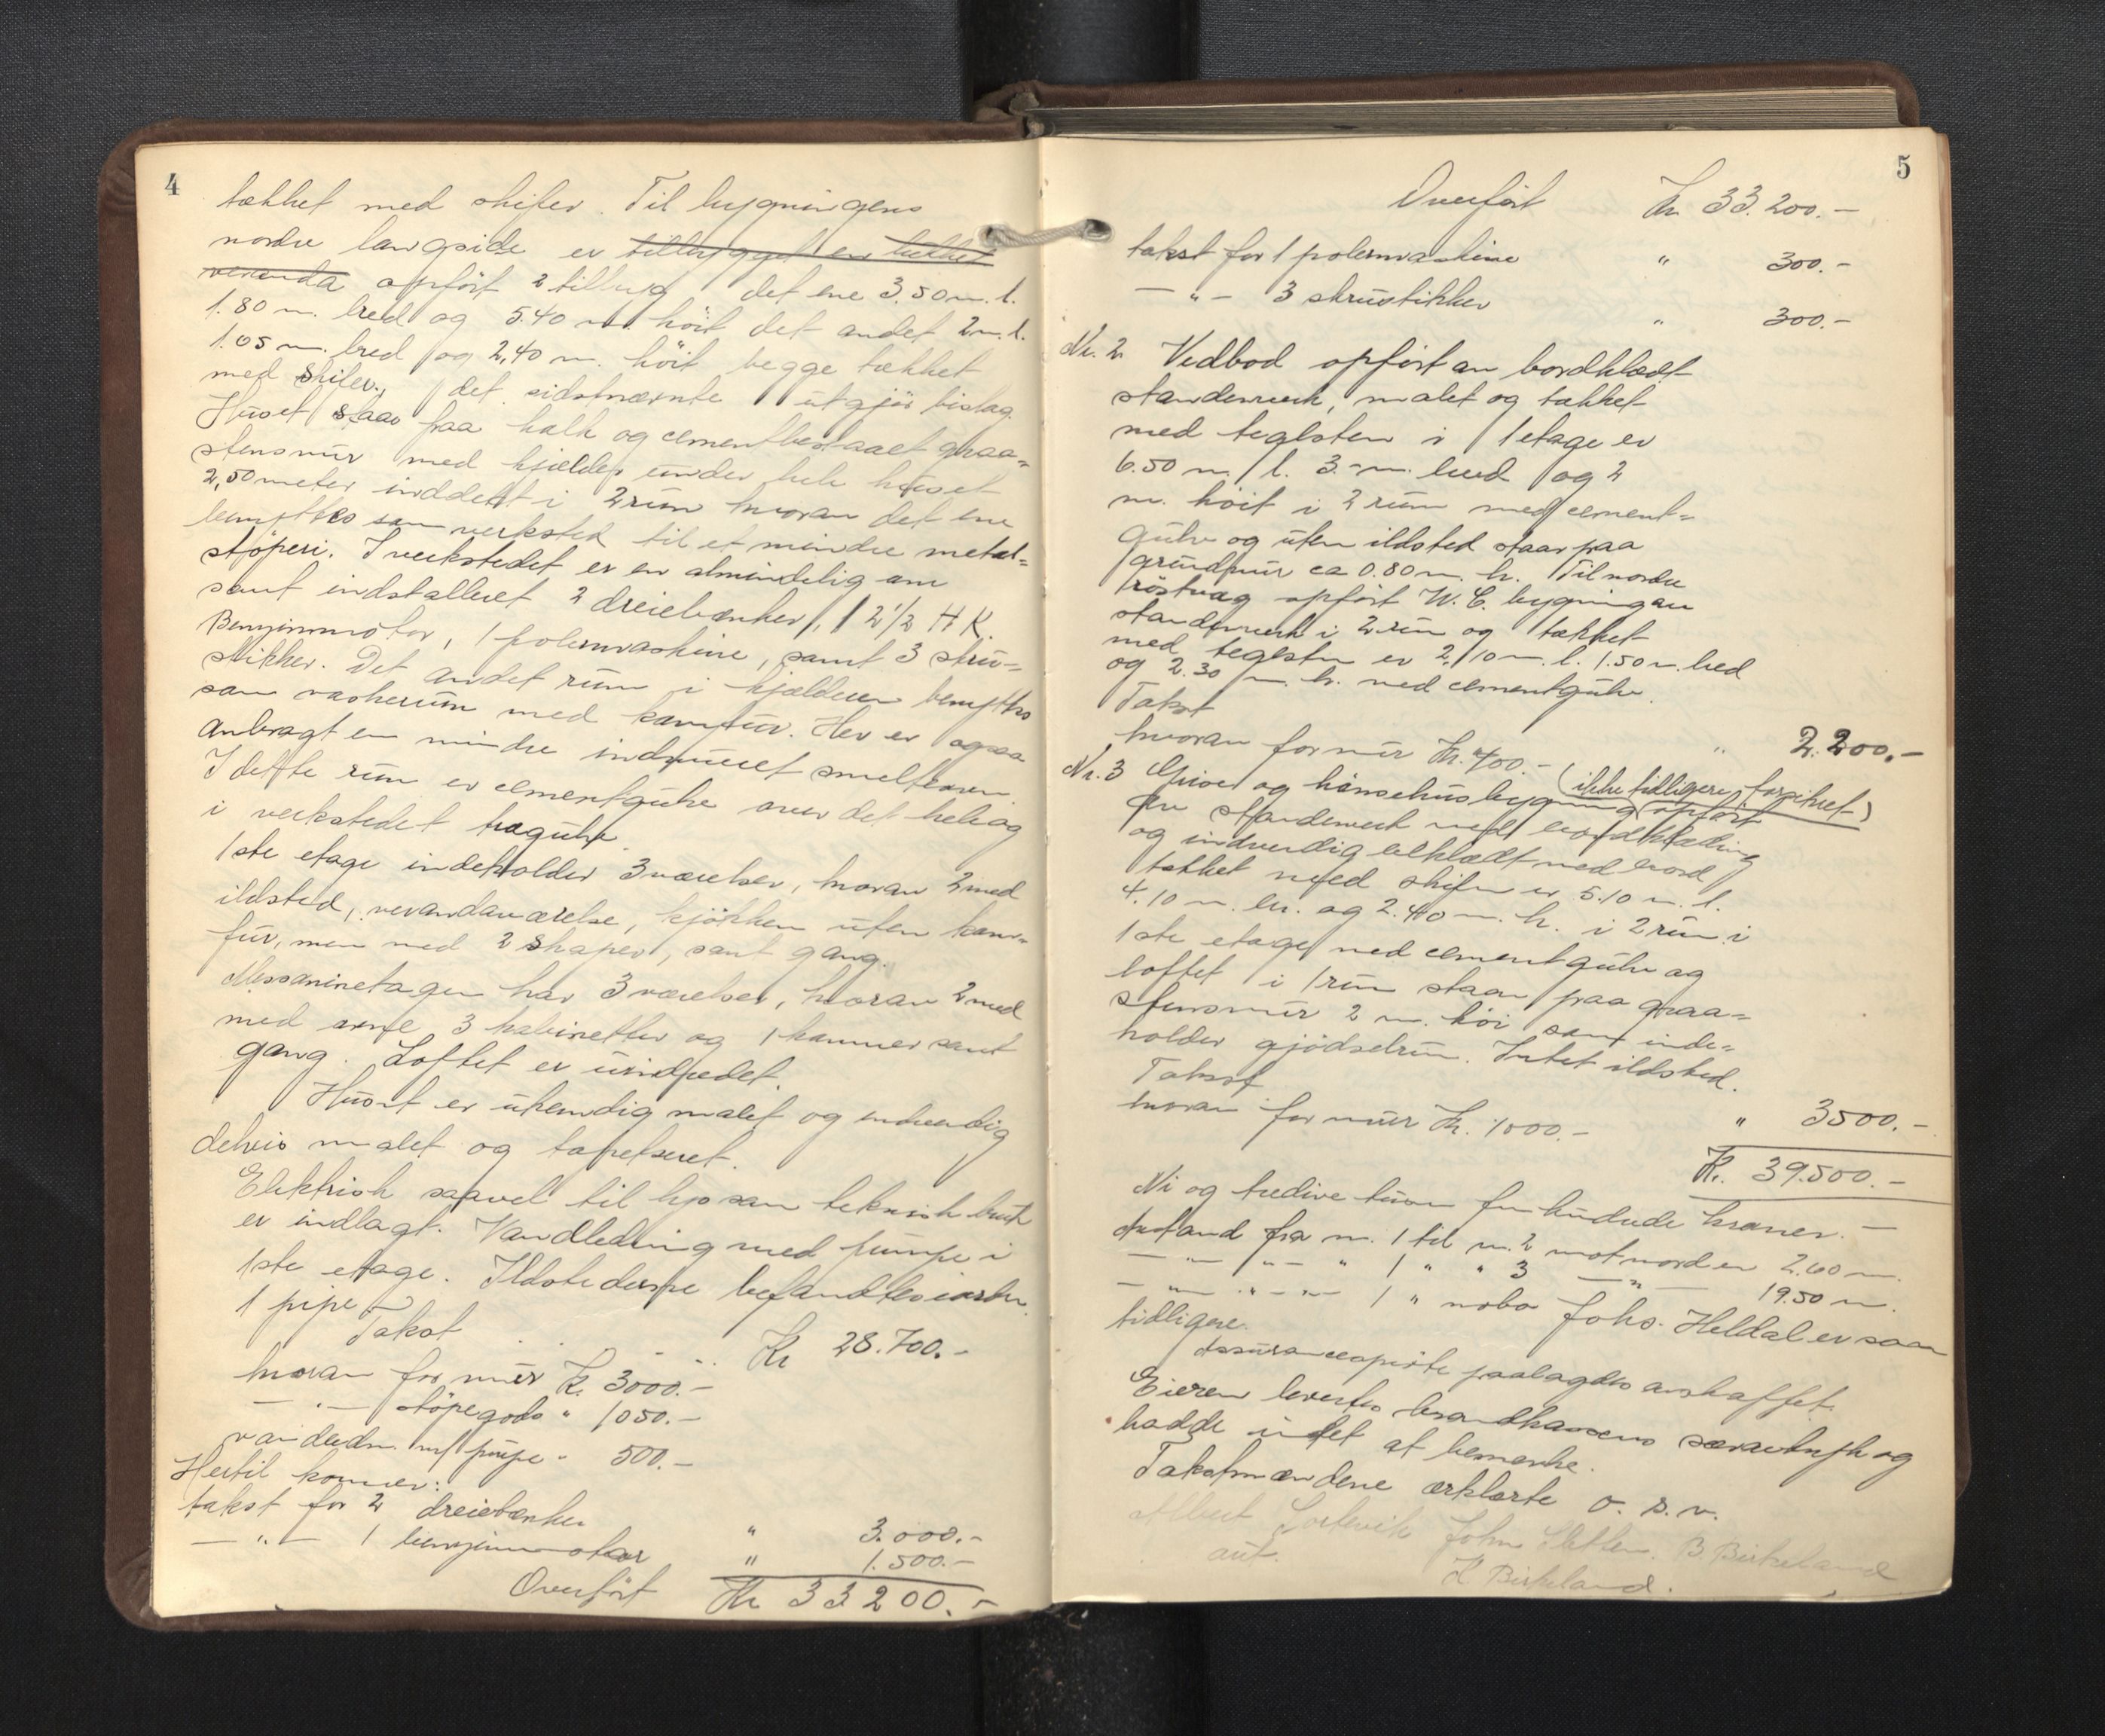 4
tækket med skifer. Til bygningens
nordre langside er tilbygget en tækket
veranda opført 2 tilbyg, det ene 3,50 m. l.
1.80 m. bred og 5.40 m. höit det andet 2 m. l.
1.05 m. bred og 2,40 m. höit begge tækket
med skifer, det sidstnævnte utgjör bislag.
Huset staar paa kalk og cementbeslaaet graa=
stensmur med kjelder under hele huset
2,50 meter inddelt i 2 rum hvorav det ene
benyttes som verksted til et mindre metal=
støperi. I verkstedet er en almindelig avn
samt indstalleret 2 dreiebænker, 1 2 1/2 H K.
Benzinmotor, 1 polermaskine, samt 3 skru=
stikker. Det andet rum i kjælderen benyttes
som vaskerum med komfur. Her er ogsaa
anbragt en mindre indmuret smelteovn.
I dette rum er cementgulv over det hele og
i verkstedet trægulv.
1ste etage indeholder 3 værelser, hvorav 2 med
ildsted, verandaværelse, kjökken uten kom=
fur, men med 2 skaper, samt gang.
Messaninetagen har 3 værelser, hvorav 2 med
med ovne, 3 kabinetter og 1 kammer samt
gang. Loftet er uindredet.
Huset er utvendig malet og indvendig
delvis malet og tapetseret.
Elektrisk saavel til lys som teknisk bruk
er indlagt. Vandledning med pumpe i
1ste etage. Ildstederne befandtes iorden.
1 pipe
Takst Kr 28.700.-
hvorav for mur Kr. 3000.-
- " - støpegods " 1050.-
vandledn. m/ pumpe " 500.-
Hertil kommer:
takst for 2 dreiebænker " 3.000.-
- " - 1 benzinmotor " 1.500.-
Overført Kr 33200.-
5
Overført Kr 33.200.-
takst for 1 polermaskine " 300.-
- " - 3 skrustikker " 300.-
Nr. 2 Vedbod opført av bordklædt
standerverk, malet og tækket
med teglsten i 1 etage er
6.50 m. l. 3.- m. bred og 2
m. höit i 2 rum med cement=
gulv og uten ildsted staar paa
grundmur ca 0.80 m. h. Til nordre
røstvæg opført W.C. bygning av
standerverk i 2 rum og tækket
med teglsten er 2,10 m. l. 1.50 m. bred
og 2.30 m. h. med cementgulv.
Takst
hvorav for mur Kr. 400.- " 2.200.-
Nr. 3 Grise og hønsehusbygning (ikke tidligere forsikret) opført
av standerverk med bordklædning
og indvendig beklædt med bord
tækket med skifer er 5.10 m. l.
4.10 m. br. og 2.40 m. h. i 2 rum i
1ste etage med cementgulv og
loftet i 1 rum staar paa graa=
stensmur 2 m. høi som inde=
holder gjødselrum. Intet ildsted.
Takst
hvorav for mur Kr. 1000.- " 3500.-
Kr. 39.500.-
Ni og tredive tusen fem hundrede kroner. -
Avstand fra nr. 1 til nr. 2 mot nord er 2.60 m.
- " - " - " 1 " " 3 - " - 19.50 m.
- " - " - " - 1 " nabo Johs. Heldal er som
tidligere.
Assurancepröite paalagdes anskaffet.
Eieren levertes brandkassens særavtryk og
hadde intet at bemerke.
Takstmændene erklærte o. s. v.
Albert John Sletten. B Birkeland
aut. K Birkeland.